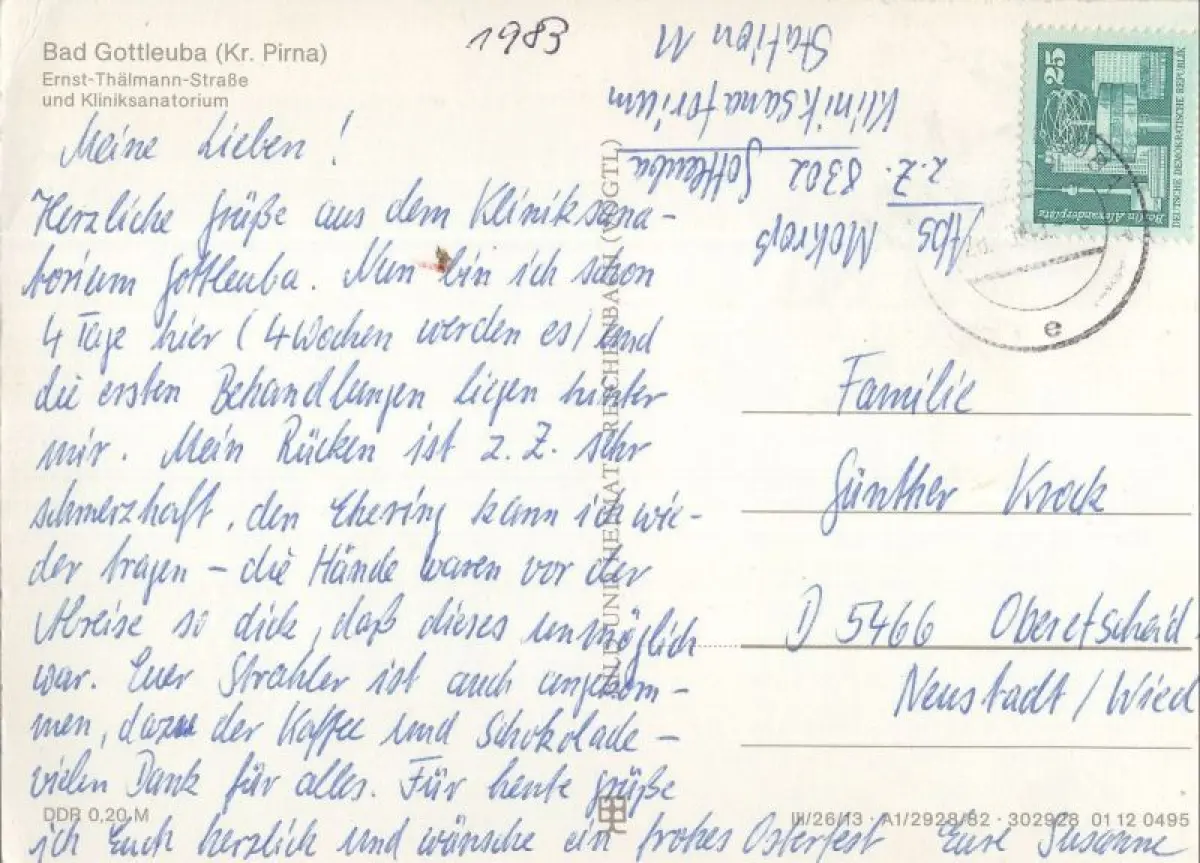 Bad Gottleuba (Kr. Pirna)
Ernst-Thälmann-Straße
und Kliniksanatorium
1983
Meine Lieben!
Herzliche Grüße aus dem Kliniksana-
torium Gottleuba. Nun bin ich schon
4 Tage hier (4 Wochen werden es) und
die ersten Behandlungen liegen hinter
mir. Mein Rücken ist z. Z. sehr
schmerzhaft, den Ehering kann ich wie-
der tragen – die Hände waren vor der
Abreise so dick, daß dieses unmöglich
war. Euer Strahler ist auch angekom-
men, dazu der Kaffee und Schokolade –
vielen Dank für alles. Für heute grüße
ich Euch herzlich und wünsche ein frohes Osterfest Eure Susanne
DDR 0,20 M
BILD UND HEIMAT REICHENBACH (VOGTL)
Abs Mokroß
z. Z. 8302 Gottleuba
Kliniksanatorium
Station M
25
DEUTSCHE DEMOKRATISCHE REPUBLIK
Berlin, Alexanderplatz
e
Familie
Günther Krock
D 5466 Oberetscheid
Neustadt / Wied
III/26/13 · A1/2928/82 · 302928 01 12 0495